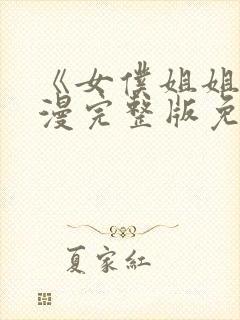 《女僕姐姐
漫完整版免
夏家紅